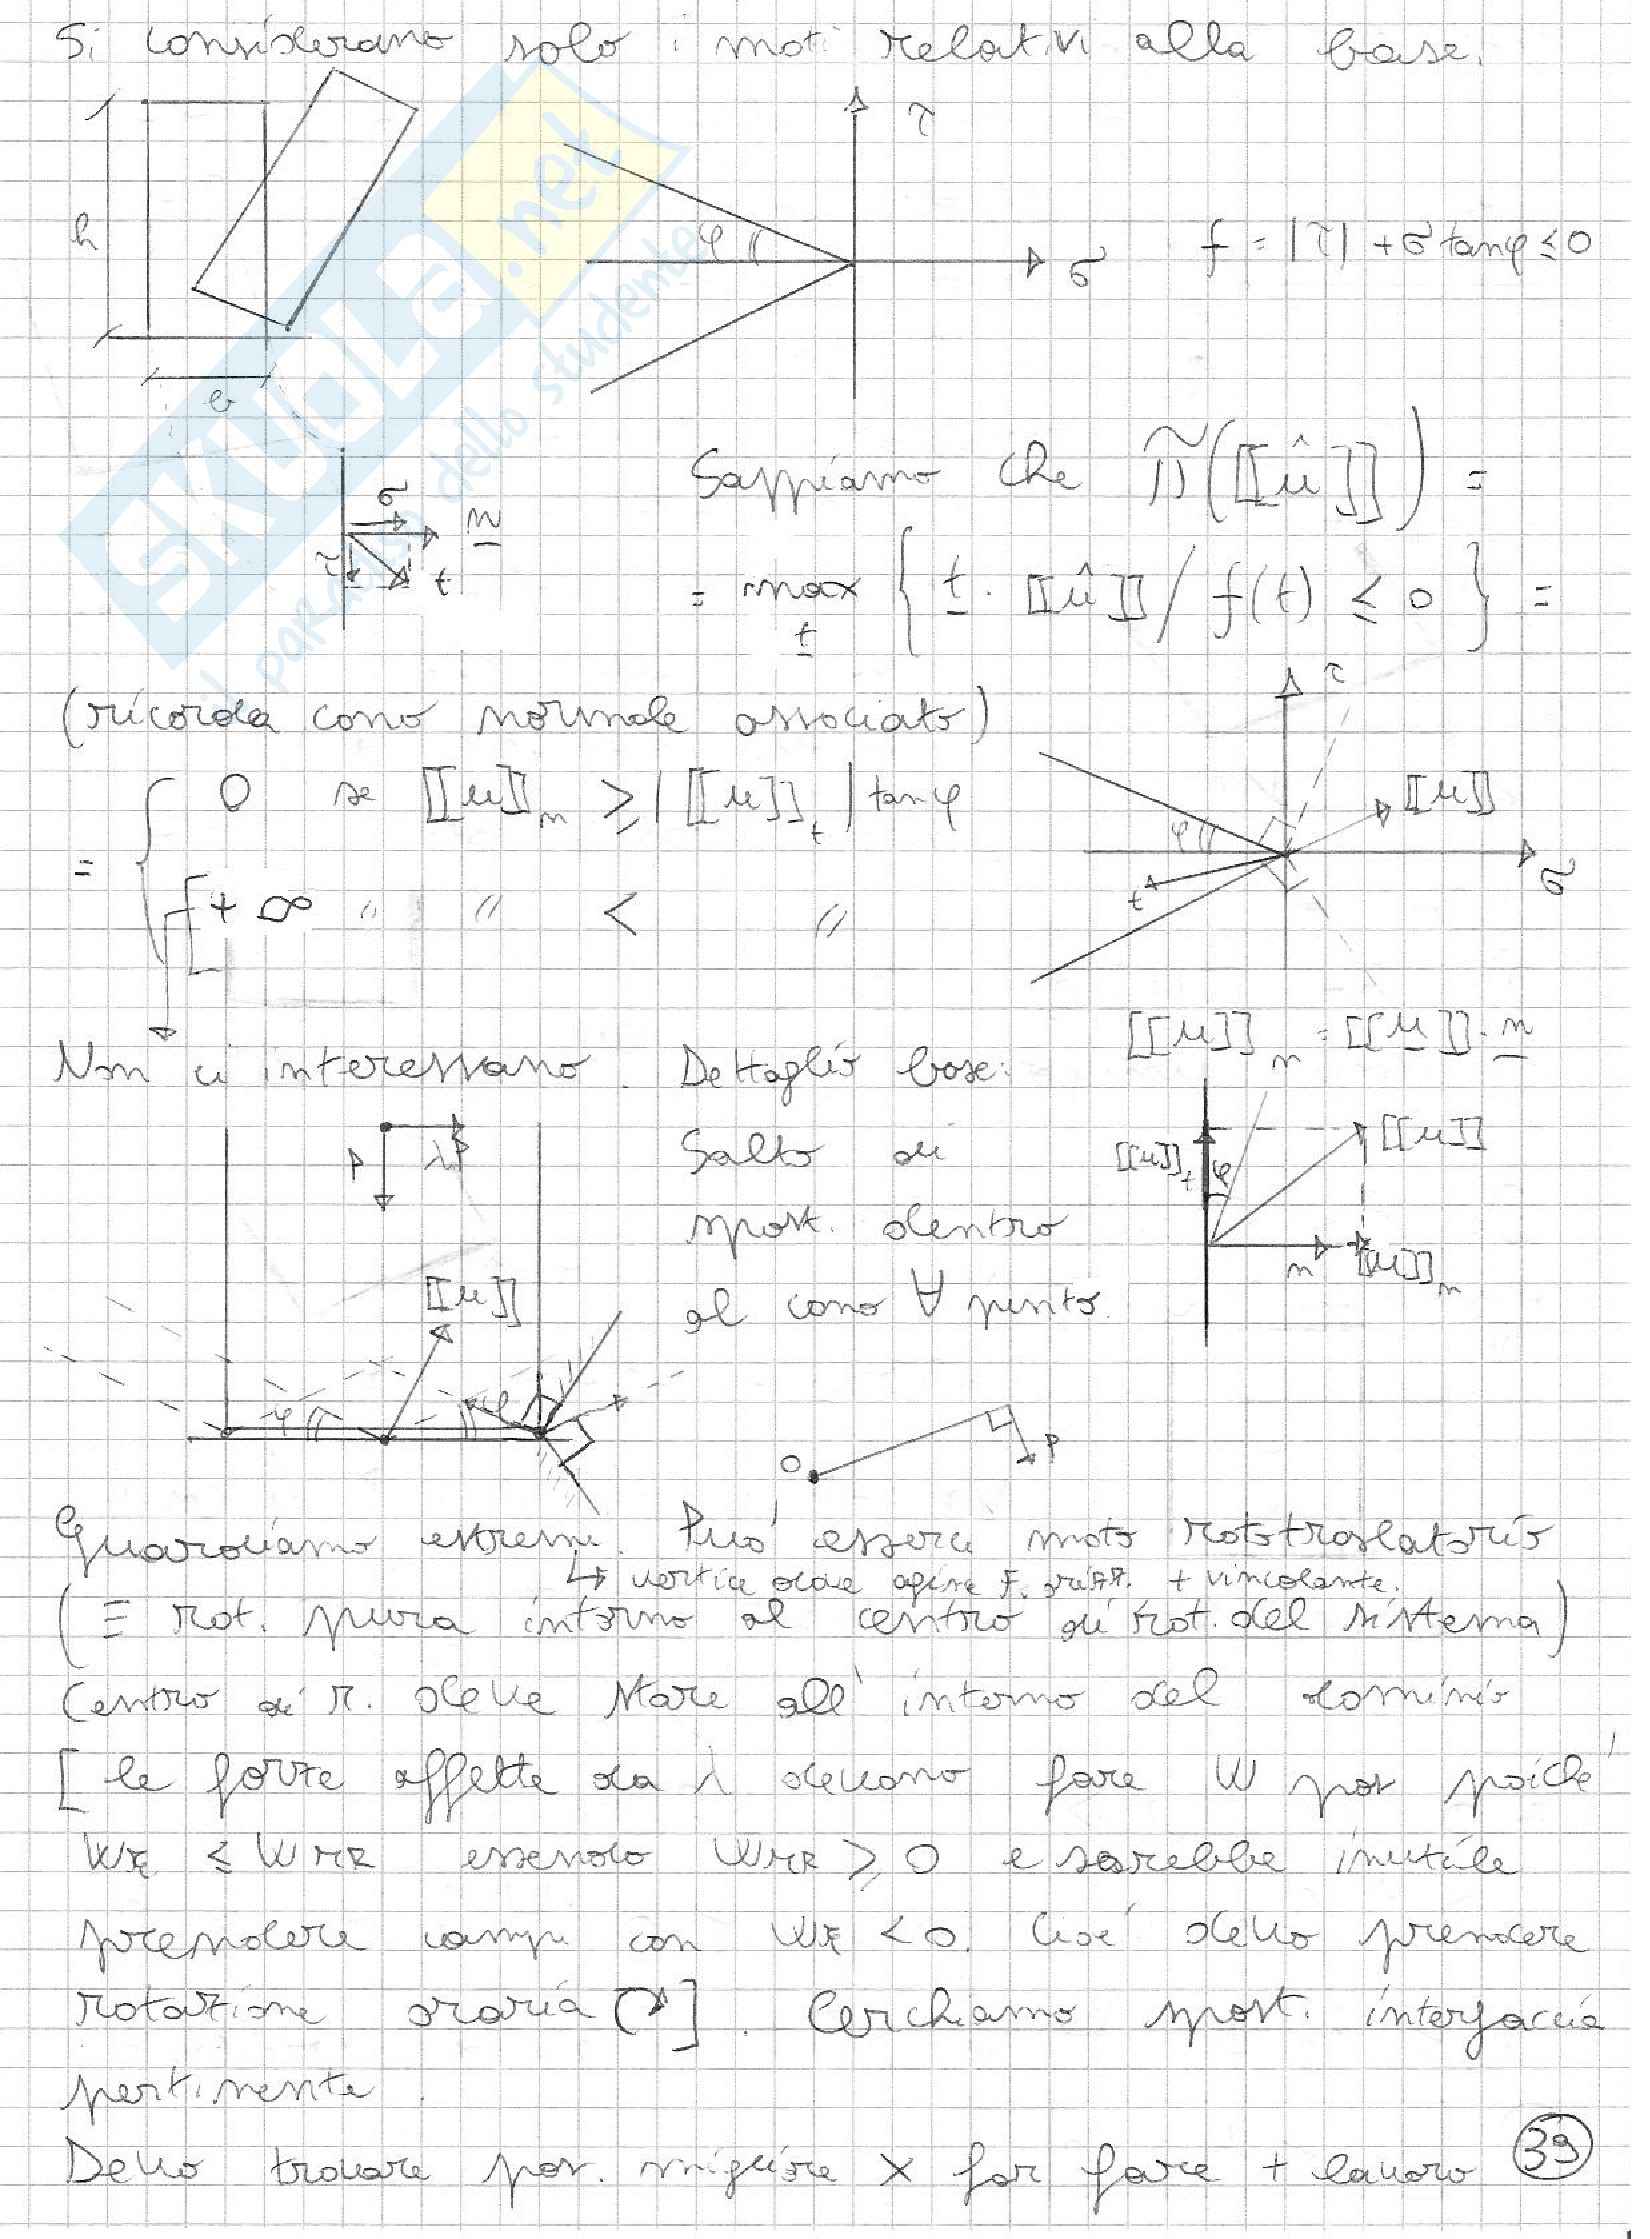 Si considerano solo i moti relativi alla base.
h
b
τ
σ
φ
f = |τ| + σ tanφ ≤ 0
SKUOLA.net
il paradiso dello studente
σ
n
τ
t
Sappiamo che π̃([[û]]) =
= max_t { t · [[û]] / f(t) ≤ 0 } =
(ricorda cono normale associato)
= { 0 se [[u]]_n ≥ |[[u]]_t| tanφ
+∞ " " < "
τ
[[u]]
φ
σ
t
[[u]]_n = [[u]] · n
Non ci interessano. Dettaglio base:
P
λP
[[u]]
φ
φ
Salto di
spost. dentro
al cono ∀ punto.
[[u]]_t
φ
[[u]]
n
[[u]]_n
O
P
Guardiamo estremi. Può esserci moto rototraslatorio
↳ vertice dove agisce
+ vincolante.
(≡ rot. pura intorno al centro di rot. del sistema)
Centro di r. deve stare all'interno del dominio
[le forze affette da λ devono fare W pos poiché
≤ essendo ≥ 0 e sarebbe inutile
prendere campi con < 0. Cioè devo prendere
rotazione oraria ↻]. Cerchiamo spost. interfaccia
pertinente.
Devo trovare pos. migliore x far fare + lavoro
39